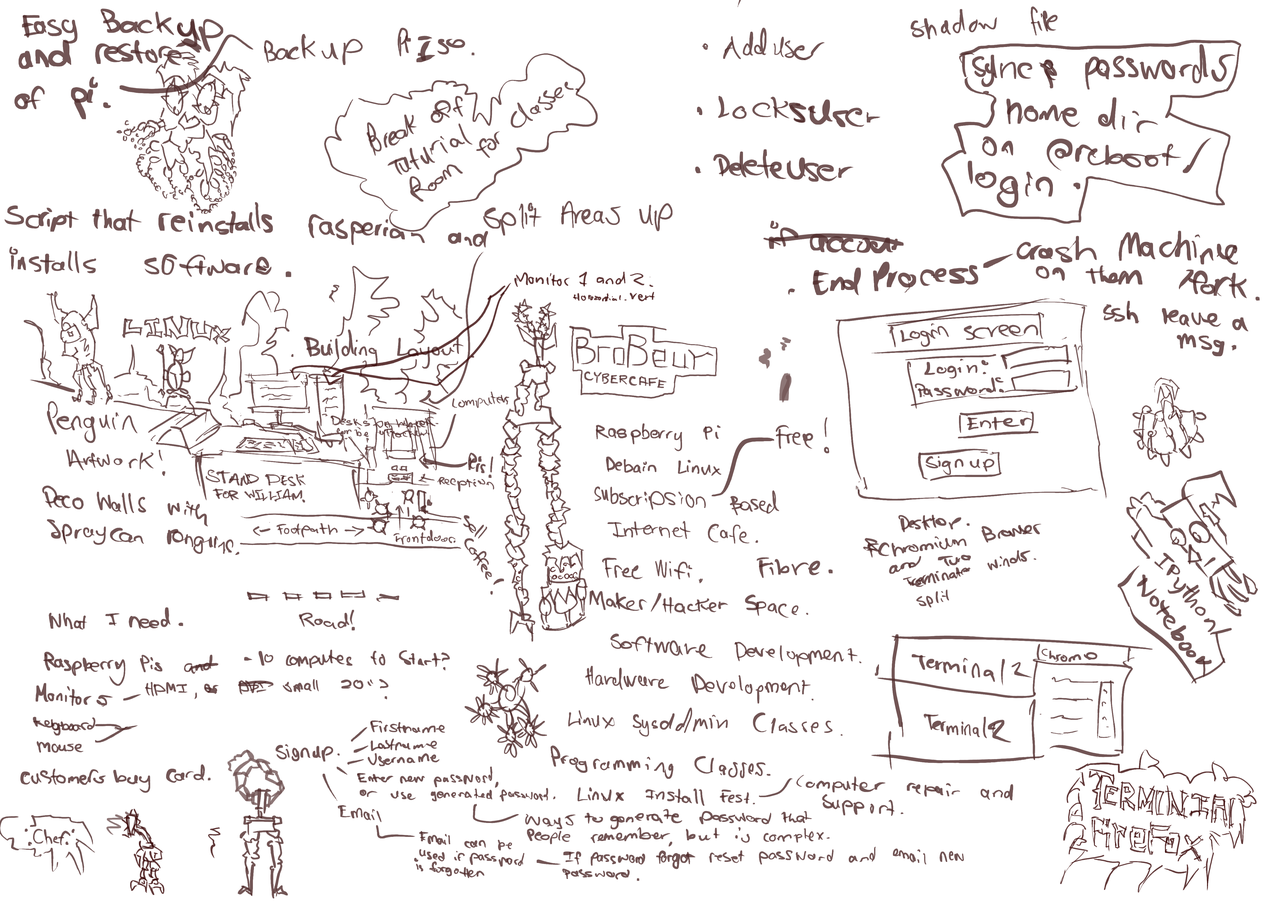 Easy Backup
and restore
of pi.
Backup Pi Iso.
Break off
Tuturial
Room for classes
Script that reinstalls rasperian and
installs software.
Split Areas up
Monitor 1 and 2.
LINUX
Building Layout
Penguin
Artwork!
STAND DESK
FOR WILLIAM.
Computers
Pi's!
Reception
Deco Walls with
Spraycan
← Footpath →
Frontdoor
Sell
Coffee!
Road!
What I need.
Raspberry Pis and - 10 computes to Start?
Monitors - HDMI, or small 20"?
Keyboard
Mouse
Customers buy card.
Chef.
BroBeur
CYBERCAFE
Raspberry Pi
Debain Linux
Subscripsion Based
Free!
Internet Cafe.
Free Wifi. Fibre.
Maker/Hacker Space.
Software Development.
Hardware Development.
Linux Sysadmin Classes.
Programming Classes.
Linux Install Fest.
Computer repair and
Support.
Signup.
Firstname
Lastname
Username
Enter new password,
or use generated password.
Ways to generate password that
People remember, but is complex.
Email
Email can be
used if password
is forgotten
If password forgot reset password and email new
password.
• Add user
• Locksuser
• Deleteuser
shadow file
sync passwords
home dir
on @reboot/
login.
• End Process
crash Machine
on them fork.
ssh leave a
msg.
Login screen
Login:
Password:
Enter
Sign up
Desktop.
Chromium Browser
and Two
Terminator Winds.
Split
IPython
Notebook
Terminal 2
Chromo
Terminal 2
TERMINAL
FireFox